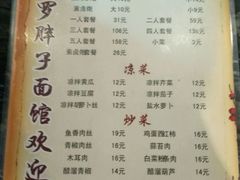 罗胖子面馆欢迎
大 10元 小 9元
一人套餐 31元 二人套餐 59元
三人套餐 106元 四人套餐 136元
五人套餐 158元 小菜
凉菜
凉拌黄瓜 12元 凉拌芹菜 12元
凉拌豆腐 12元 凉拌茄子 12元
凉拌萝卜丝 12元 盐水萝卜 12元
炒菜
鱼香肉丝 16元 鸡蛋西红柿 14元
青椒肉丝 16元 蒜苔肉 16元
木耳肉 16元 白菜粉条肉 16元
醋溜青椒 14元 醋溜葫芦 14元